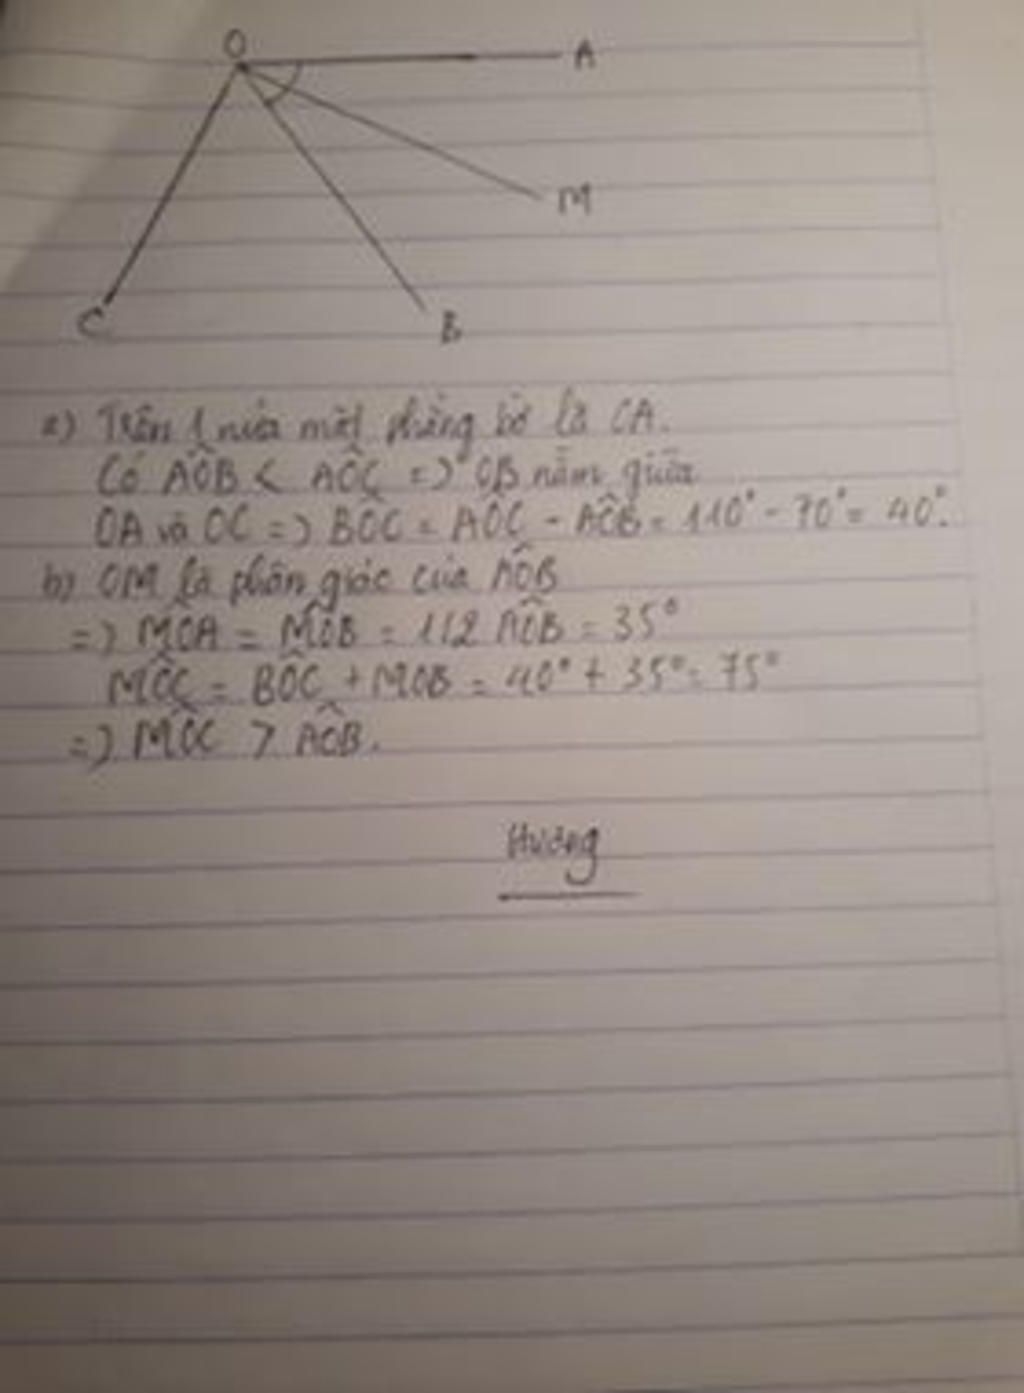 O
A
M
C
B
a) Trên 1 nửa mặt phẳng bờ là OA.
Có AÔB < AÔC => OB nằm giữa
OA và OC => BÔC = AÔC - AÔB = 110° - 70° = 40°.
b) OM là phân giác của AÔB
=> MÔA = MÔB = 1/2 AÔB = 35°
MÔC = BÔC + MOB = 40° + 35° = 75°
=> MÔC > AÔB.
Hương